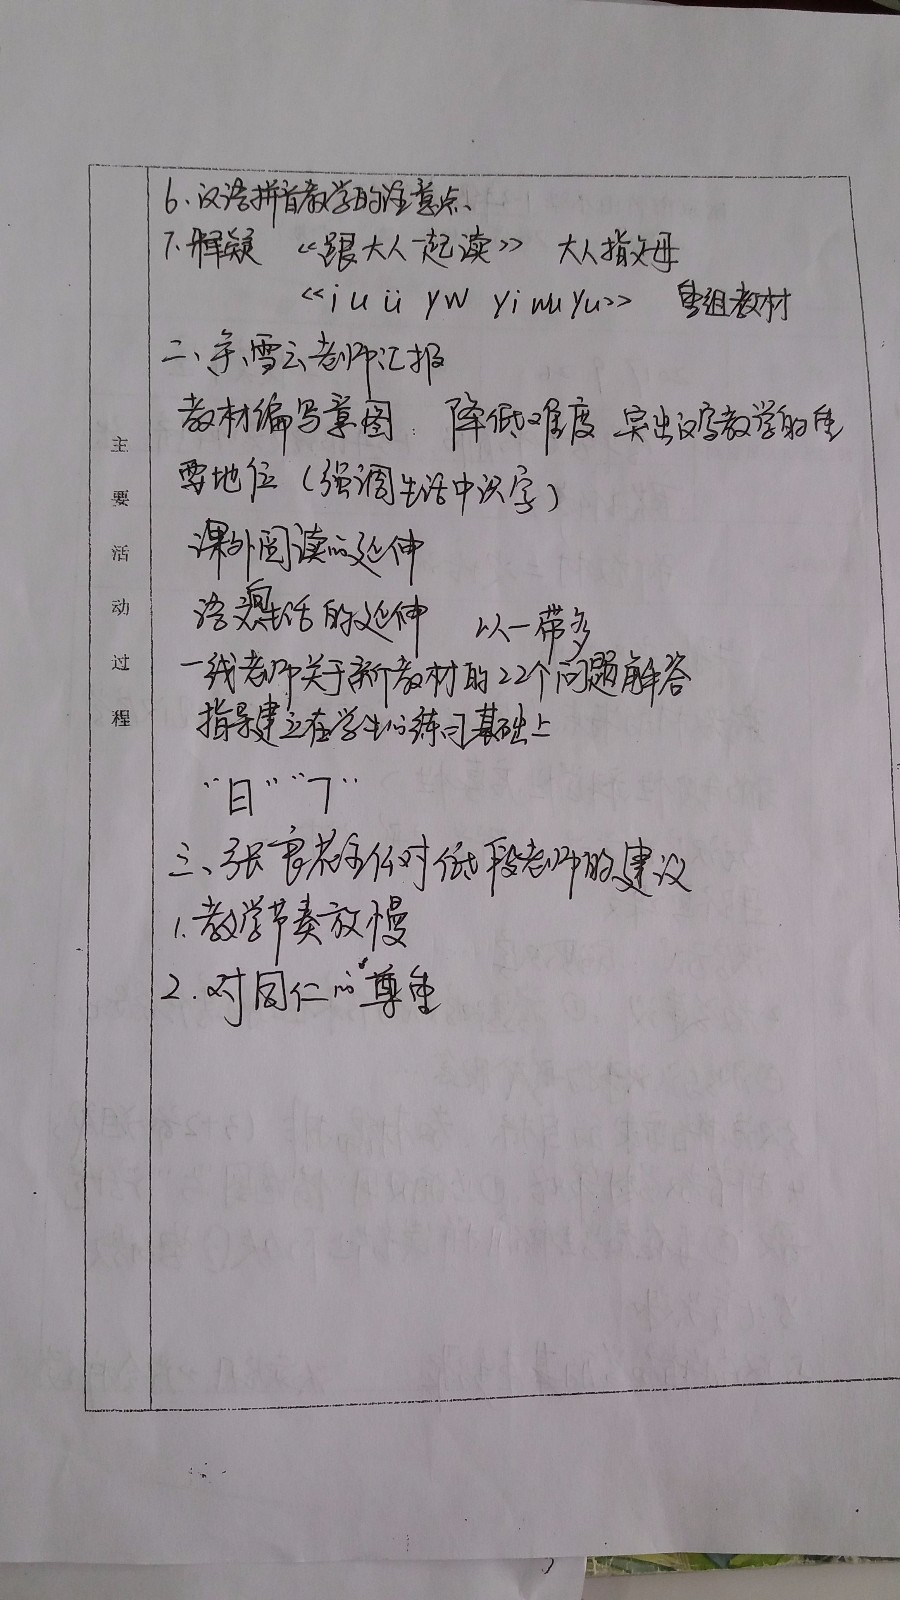 主要活动过程
6、汉语拼音教学的注意点、
7、释疑 《跟大人一起读》 大人指父母
《i u ü y w yi wu yu》 重组教材
二、雪云老师汇报
教材编写意图: 降低难度 突出汉字教学的重
要地位(强调生活中识字)
课外阅读的延伸
语生活的延伸 以一带多
一线老师关于新教材的22个问题解答
指导建立在学生的练习基础上
“日”“㇕”
三、张主任对低段老师的建议
1、教学节奏放慢
2、对同仁的尊重